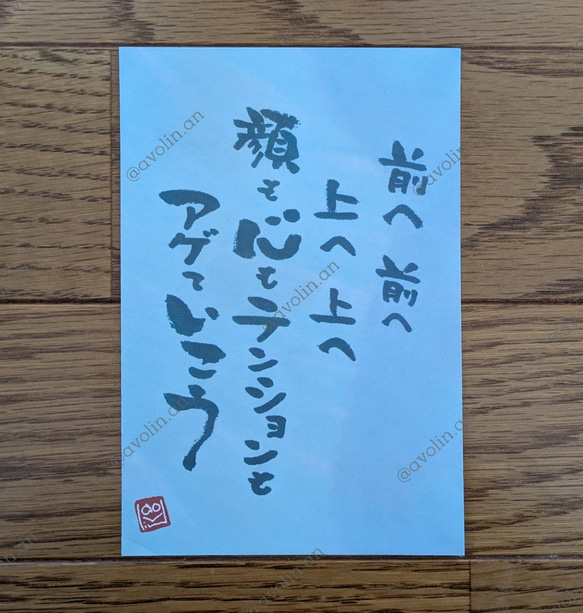 前へ前へ
上へ上へ
顔も心もテンションも
アゲていこう
@avolin.an
@avolin.an
@avolin.an
@avolin.an
@avolin.an